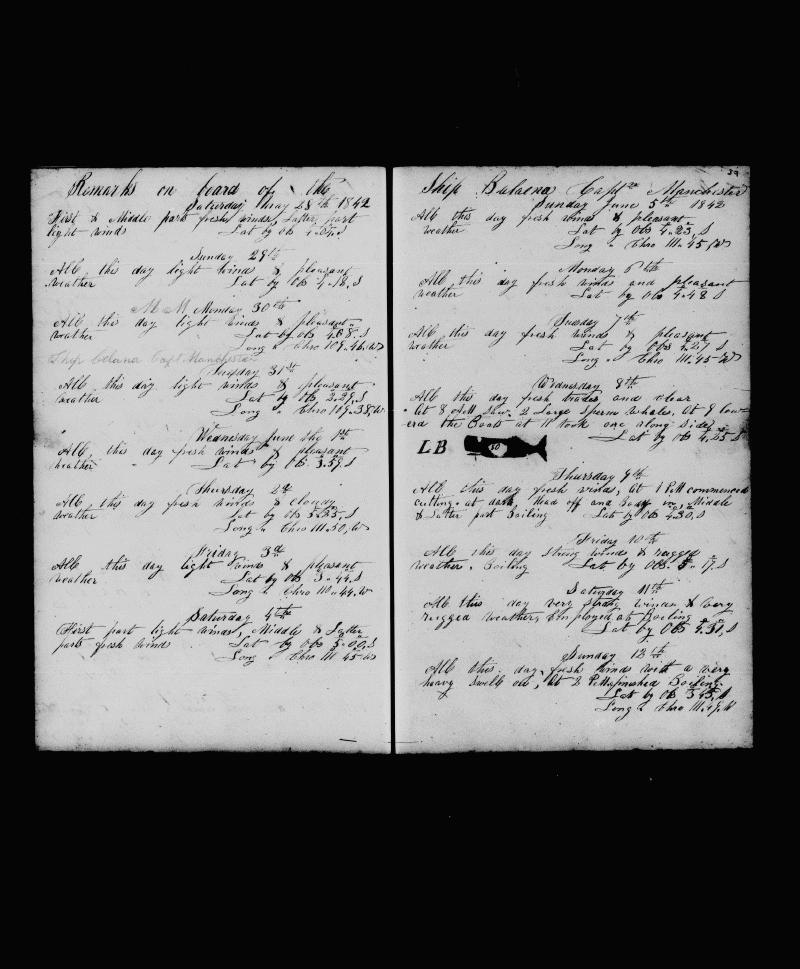 Remarks on board of the
Saturday May 28th 1842
First & Middle part fresh winds, Latter part
light winds Lat by Obs
Sunday 29th
All this day light winds & pleasant
weather Lat by Obs 4.18.S
M M Monday 30th
All this day light winds & pleasant
weather Lat by Obs
Long " Chro 109.46.W
Ship Capt Manchester
Tuesday 31st
All this day light winds & pleasant
weather Lat by Obs 2.29.S
Long " Chro 109.38.W
Wednesday June the 1st
All this day fresh winds pleasant
weather Lat by Obs 3.59.S
Thursday 2nd
All this day fresh winds & cloudy
weather Lat by Obs
Long " Chro 111.30.W
Friday 3rd
All this day light winds & pleasant
weather Lat by Obs 3.44.S
Long " Chro 110.44.W
Saturday 4th
First part light winds, Middle & Latter
parts fresh winds Lat by Obs 5.00.S
Long " Chro 111 45 W
39
Ship Balaena Capt Manchester
Sunday June 5th 1842
All this day fresh winds & pleasant
weather Lat by Obs 4.23.S
Long " Chro 111.45 W
Monday 6th
All this day fresh winds and pleasant
weather Lat by Obs 4.48 S
Tuesday 7th
All this day fresh winds & pleasant
weather Lat by Obs 4.27 S
Long " Chro 111.45 W
Wednesday 8th
All this day fresh trades and clear
At 8 AM saw 2 Large Sperm Whales, at 9 low-
erd the Boats at 11 took one along side
Lat by Obs 4.25 S
LB 50
Thursday 9th
All this day fresh winds, at 1 PM commenced
cutting. at dark, Head off and Body in, Middle
& Latter part Boiling Lat by Obs 4.30.S
Friday 10th
All this day strong winds & rugged
weather. Boiling Lat by Obs 5.17.S
Saturday 11th
All this day very strong winds & very
rugged weather, Employed at Boiling
Lat by Obs
Sunday 12th
All this day fresh winds with a very
heavy swell on, At 2 PM finished Boiling
Lat by Obs
Long " Chro 111.49.W